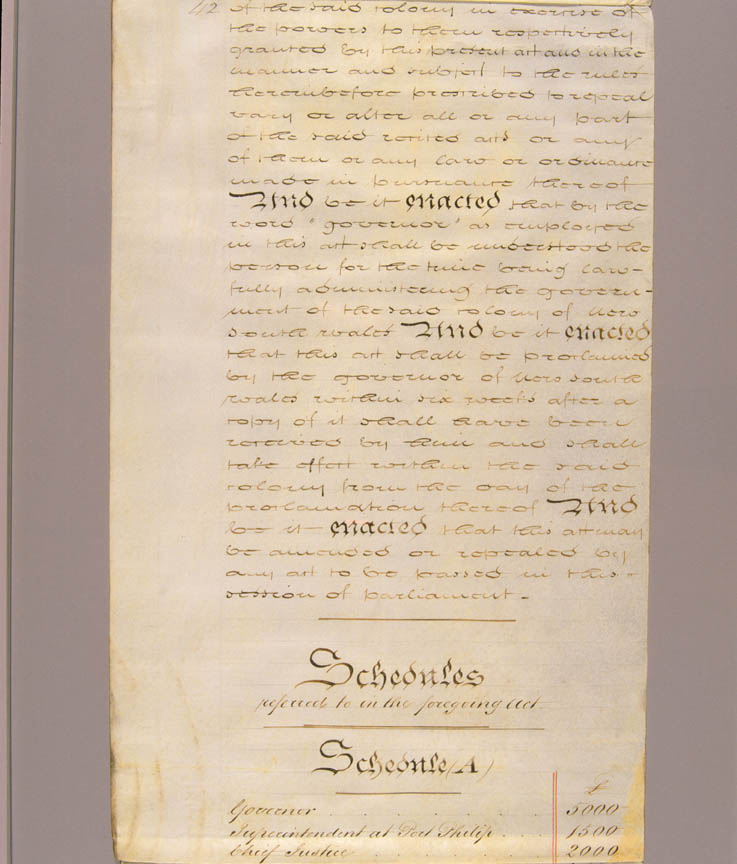 42 of the said colony in exercise of
the powers to them respectively
granted by this present act and in the
manner and subject to the rules
hereinbefore prescribed to repeal
vary or alter all or any part
of the said recited acts or any
of them or any law or ordinance
made in pursuance thereof
And be it enacted that by the
word "governor" as employed
in this act shall be understood the
person for the time being law-
fully administering the govern-
ment of the said colony of New
South Wales And be it enacted
that this act shall be proclaimed
by the governor of New South
Wales within six weeks after a
copy of it shall have been
received by him and shall
take effect within the said
colony from the day of the
proclamation thereof And
be it enacted that this act may
be amended or repealed by
any act to be passed in this
session of parliament -
Schedules
referred to in the foregoing Act
Schedule (A)
£
Governor . . . . . 5000
Superintendent at Port Philip . . . 1500
Chief Justice . . . . 2000